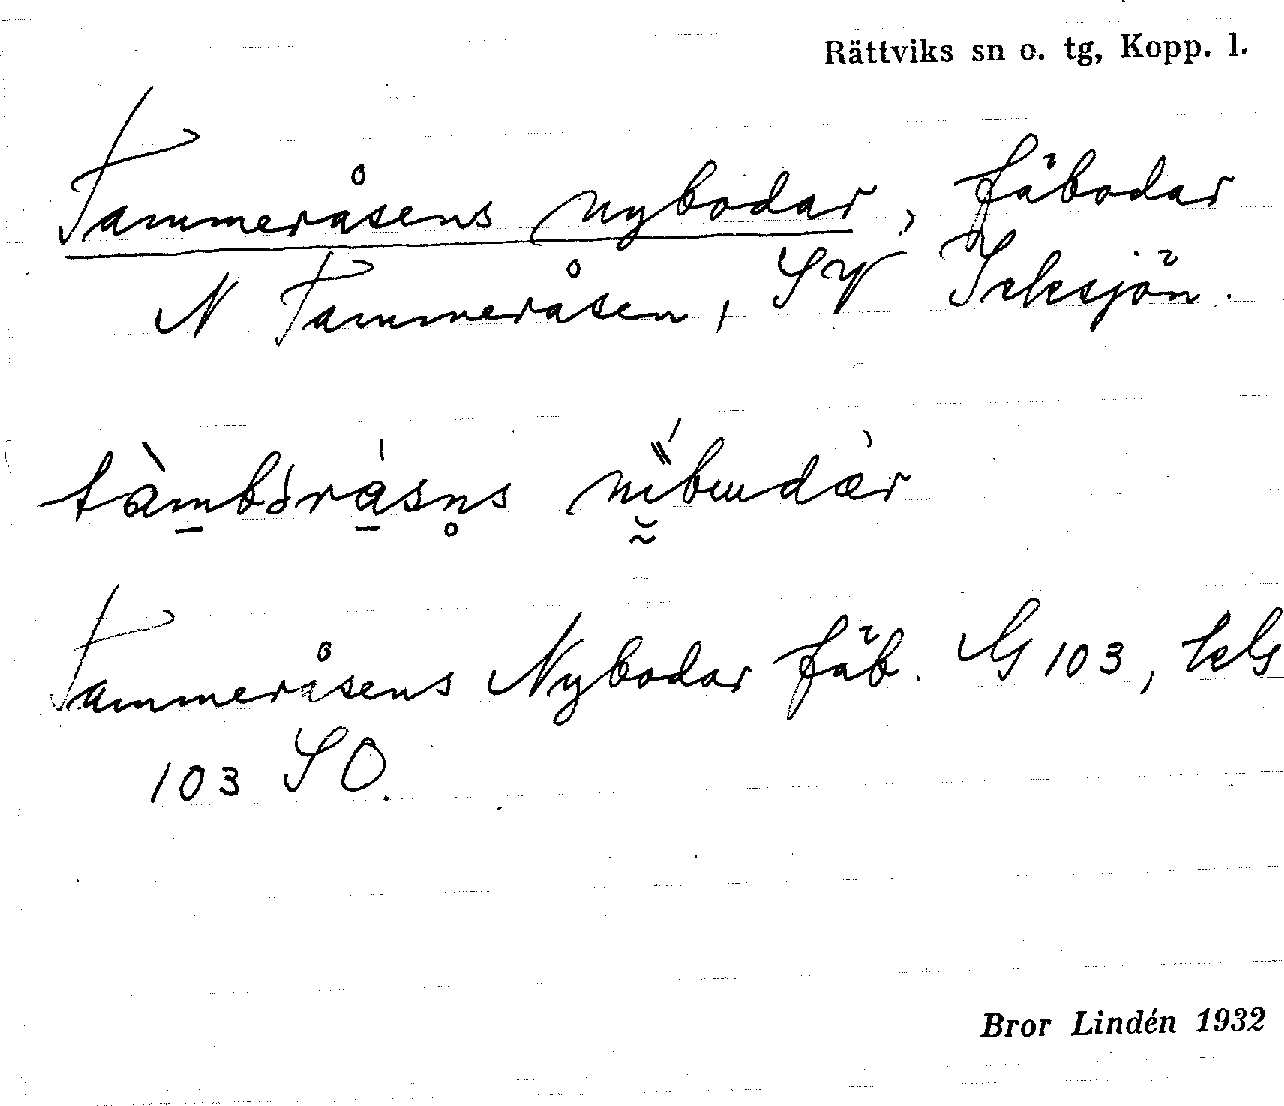 Rättviks sn o. tg, Kopp. l.
Tammeråsens nybodar, fäbodar
N Tammeråsen, SV Icksjön.
Tammeråsens Nybodar fäb. G 103, kG
103 SO.
Bror Lindén 1932